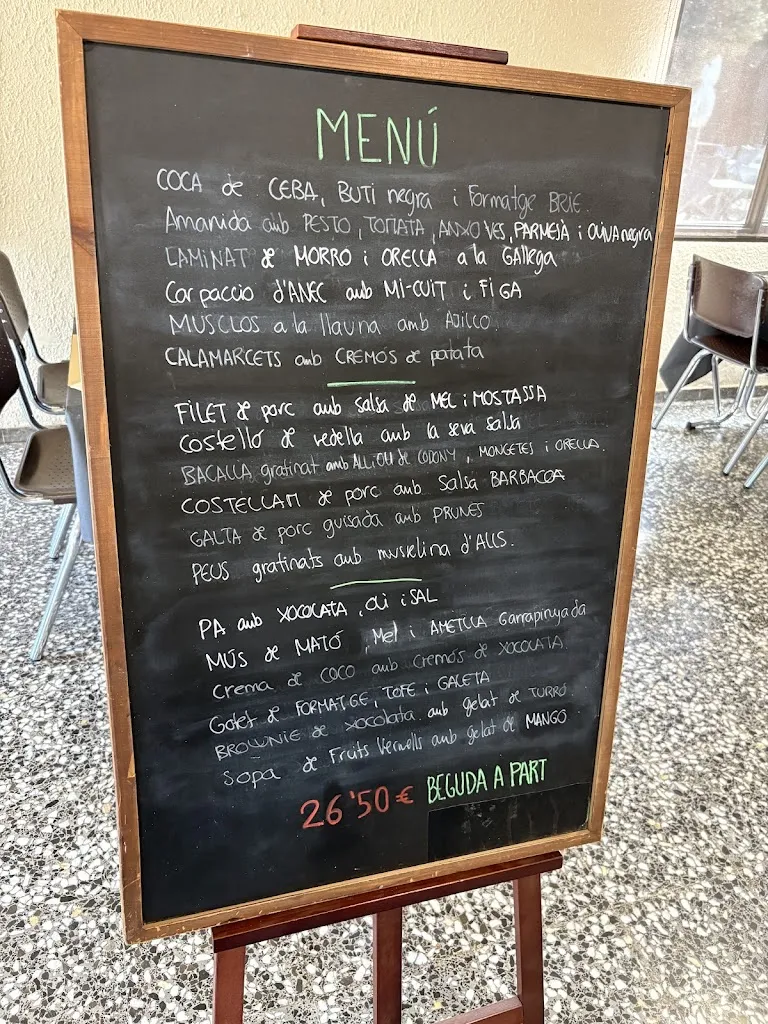 MENÚ
COCA de CEBA, BUTI negra i Formatge BRIE.
Amanida amb PESTO, TOMATA, ANXOVES, PARMEJÀ i OLIVA negra
LAMINAT de MORRO i ORELLA a la GAllega
Carpaccio d'ÀNEC amb MI-CUIT i FIGA
MUSCLOS a la llauna amb AJILLO
CALAMARCETS amb CREMÓS de patata
FILET de porc amb salsa de MEL i MOSTASSA
Costelló de vedella amb la seva salsa
BACALLÀ gratinat amb ALLIOLI de CODONY, MONGETES i ORELLA.
COSTELLAM de porc amb Salsa BARBACOA
GALTA de porc guisada amb PRUNES
PEUS gratinats amb muselina d'ALLS.
PA amb XOCOLATA, OLI i SAL
MÚS de MATÓ, Mel i AMETLLA Garrapinyada
Crema de COCO amb Cremós de XOCOLATA
Gotet de FORMATGE, TOFE i GALETA
BROWNIE de xocolata amb gelat de TURRÓ.
Sopa de Fruits Vermells amb gelat de MANGO
26'50€ BEGUDA A PART